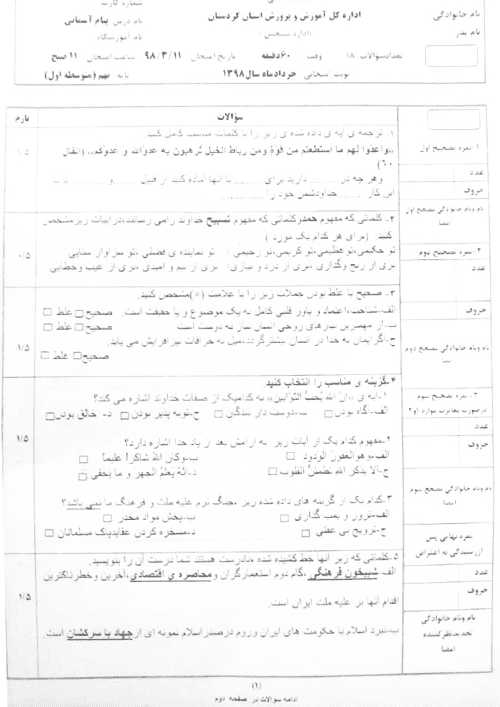 شماره کارت
نام خانوادگی
اداره کل آموزش و پرورش استان کردستان
نام درس پیام آسمانی
نام پدر
اداره سنجش
نام آموزشگاه:
تعدادسوالات ۱۸ وقت ۶۰دقیقه تاریخ امتحان ۹۸/۳/۱۱ ساعت امتحان ۱۱ صبح
نوبت امتحانی خردادماه سال ۱۳۹۸ پایه نهم (متوسطه اول)
سؤالات
بارم
۱. ترجمه ی آیه ی داده شده ی زیر را با کلمات مناسب کامل کنید.
,,واعدّوا لهم ما استطعتم من قوّهٔ ومن رباط الخیل تُرهبون به عدوّالله و عدوّکم,, (انفال
۶۰)
وهر چه در......... دارید برای ......... با آنها آماده کنید از قبیل ......... و .........
این کار ......... خداودشمن خود را .........
۲- کلماتی که مفهوم حمدوکلماتی که مفهوم تسبیح خداوند رامی رسانند،درابیات زیرمشخص
کنید (برای هر کدام یک مورد )
تو حکیمی،تو عظیمی،تو کریمی،تو رحیمی / تو نماینده ی فضلی ،تو سزاوار ثنایی
بری از رنج وگدازی ،بری از درد و نیازی/ بری از بیم و امیدی ،بری از عیب وخطایی
۰/۵
۳- صحیح یا غلط بودن جملات زیر را با علامت (×)مشخص کنید.
الف-شناخت،اعتماد و باور قلبی کامل به یک موضوع و یا حقیقت است. صحیح□ غلط □
ب-از مهمترین نیازهای روحی انسان نیاز به دوست است صحیح□ غلط □
ج-اگرایمان به خدا در انسان بیشترگردد،میل به خرافات نیزافزایش می یابد.
صحیح□ غلط □
۱/۵
۴-گزینه ی مناسب را انتخاب کنید.
۱-آیه ی ,,انّ اللهَ یُحبُّ التّوّابین,, به کدامیک از صفات خداوند اشاره می کند؟
الف-آگاه بودن □ ب-دوست دار بندگان □ ج-توبه پذیر بودن □ د- خالق بودن□
۲-مفهوم کدام یک از آیات زیر به آرامش بعد از یاد خدا اشاره دارد؟
الف-وهوالغفورُ الودود □ ب-وکان اللهُ شاکراً علیماً □
ج-الا بذکر اللهِ تطمئنُّ القلوب □ د-انّهُ یعلمُ الجهرَ و ما یخفی □
۱/۵
۳.کدام یک از گزینه های داده شده زیر ،جنگ نرم علیه ملت و فرهنگ ما نمی باشد؟
الف-ترور و بمب گذاری □ ب-پخش مواد مخدر □
ج-ترویج بی عفتی □ د-مسخره کردن عقایدپاک مسلمانان □
۵-کلماتی که زیر آنها خط کشیده شده ،نادرست هستند شما درست آن را بنویسید.
الف-شبیخون فرهنگی ،گام دوم استعمارگران ومحاصره ی اقتصادی،آخرین وخطرناکترین
اقدام آنها بر علیه ملت ایران است.
ب-نبرد اسلام با حکومت های ایران وروم درصدراسلام نمونه ای ازجهاد با سرکشان است.
۱/۵
۱-نمره تصحیح اول
عدد
حروف
نام ونام خانوادگی مصحح اول
امضا
۲-نمره تصحیح دوم
عدد
حروف
نام ونام خانوادگی مصحح دوم
امضا
۳- نمره تصحیح سوم
درصورت مغایرت موارد ۱و۲
عدد
حروف
نام ونام خانوادگی مصحح سوم
امضا
نمره نهایی پس
ازرسیدگی به اعتراض
عدد
حروف
نام ونام خانوادگی
تجدیدنظرکننده
امضا
(۱)
ادامه سوالات در صفحه دوم